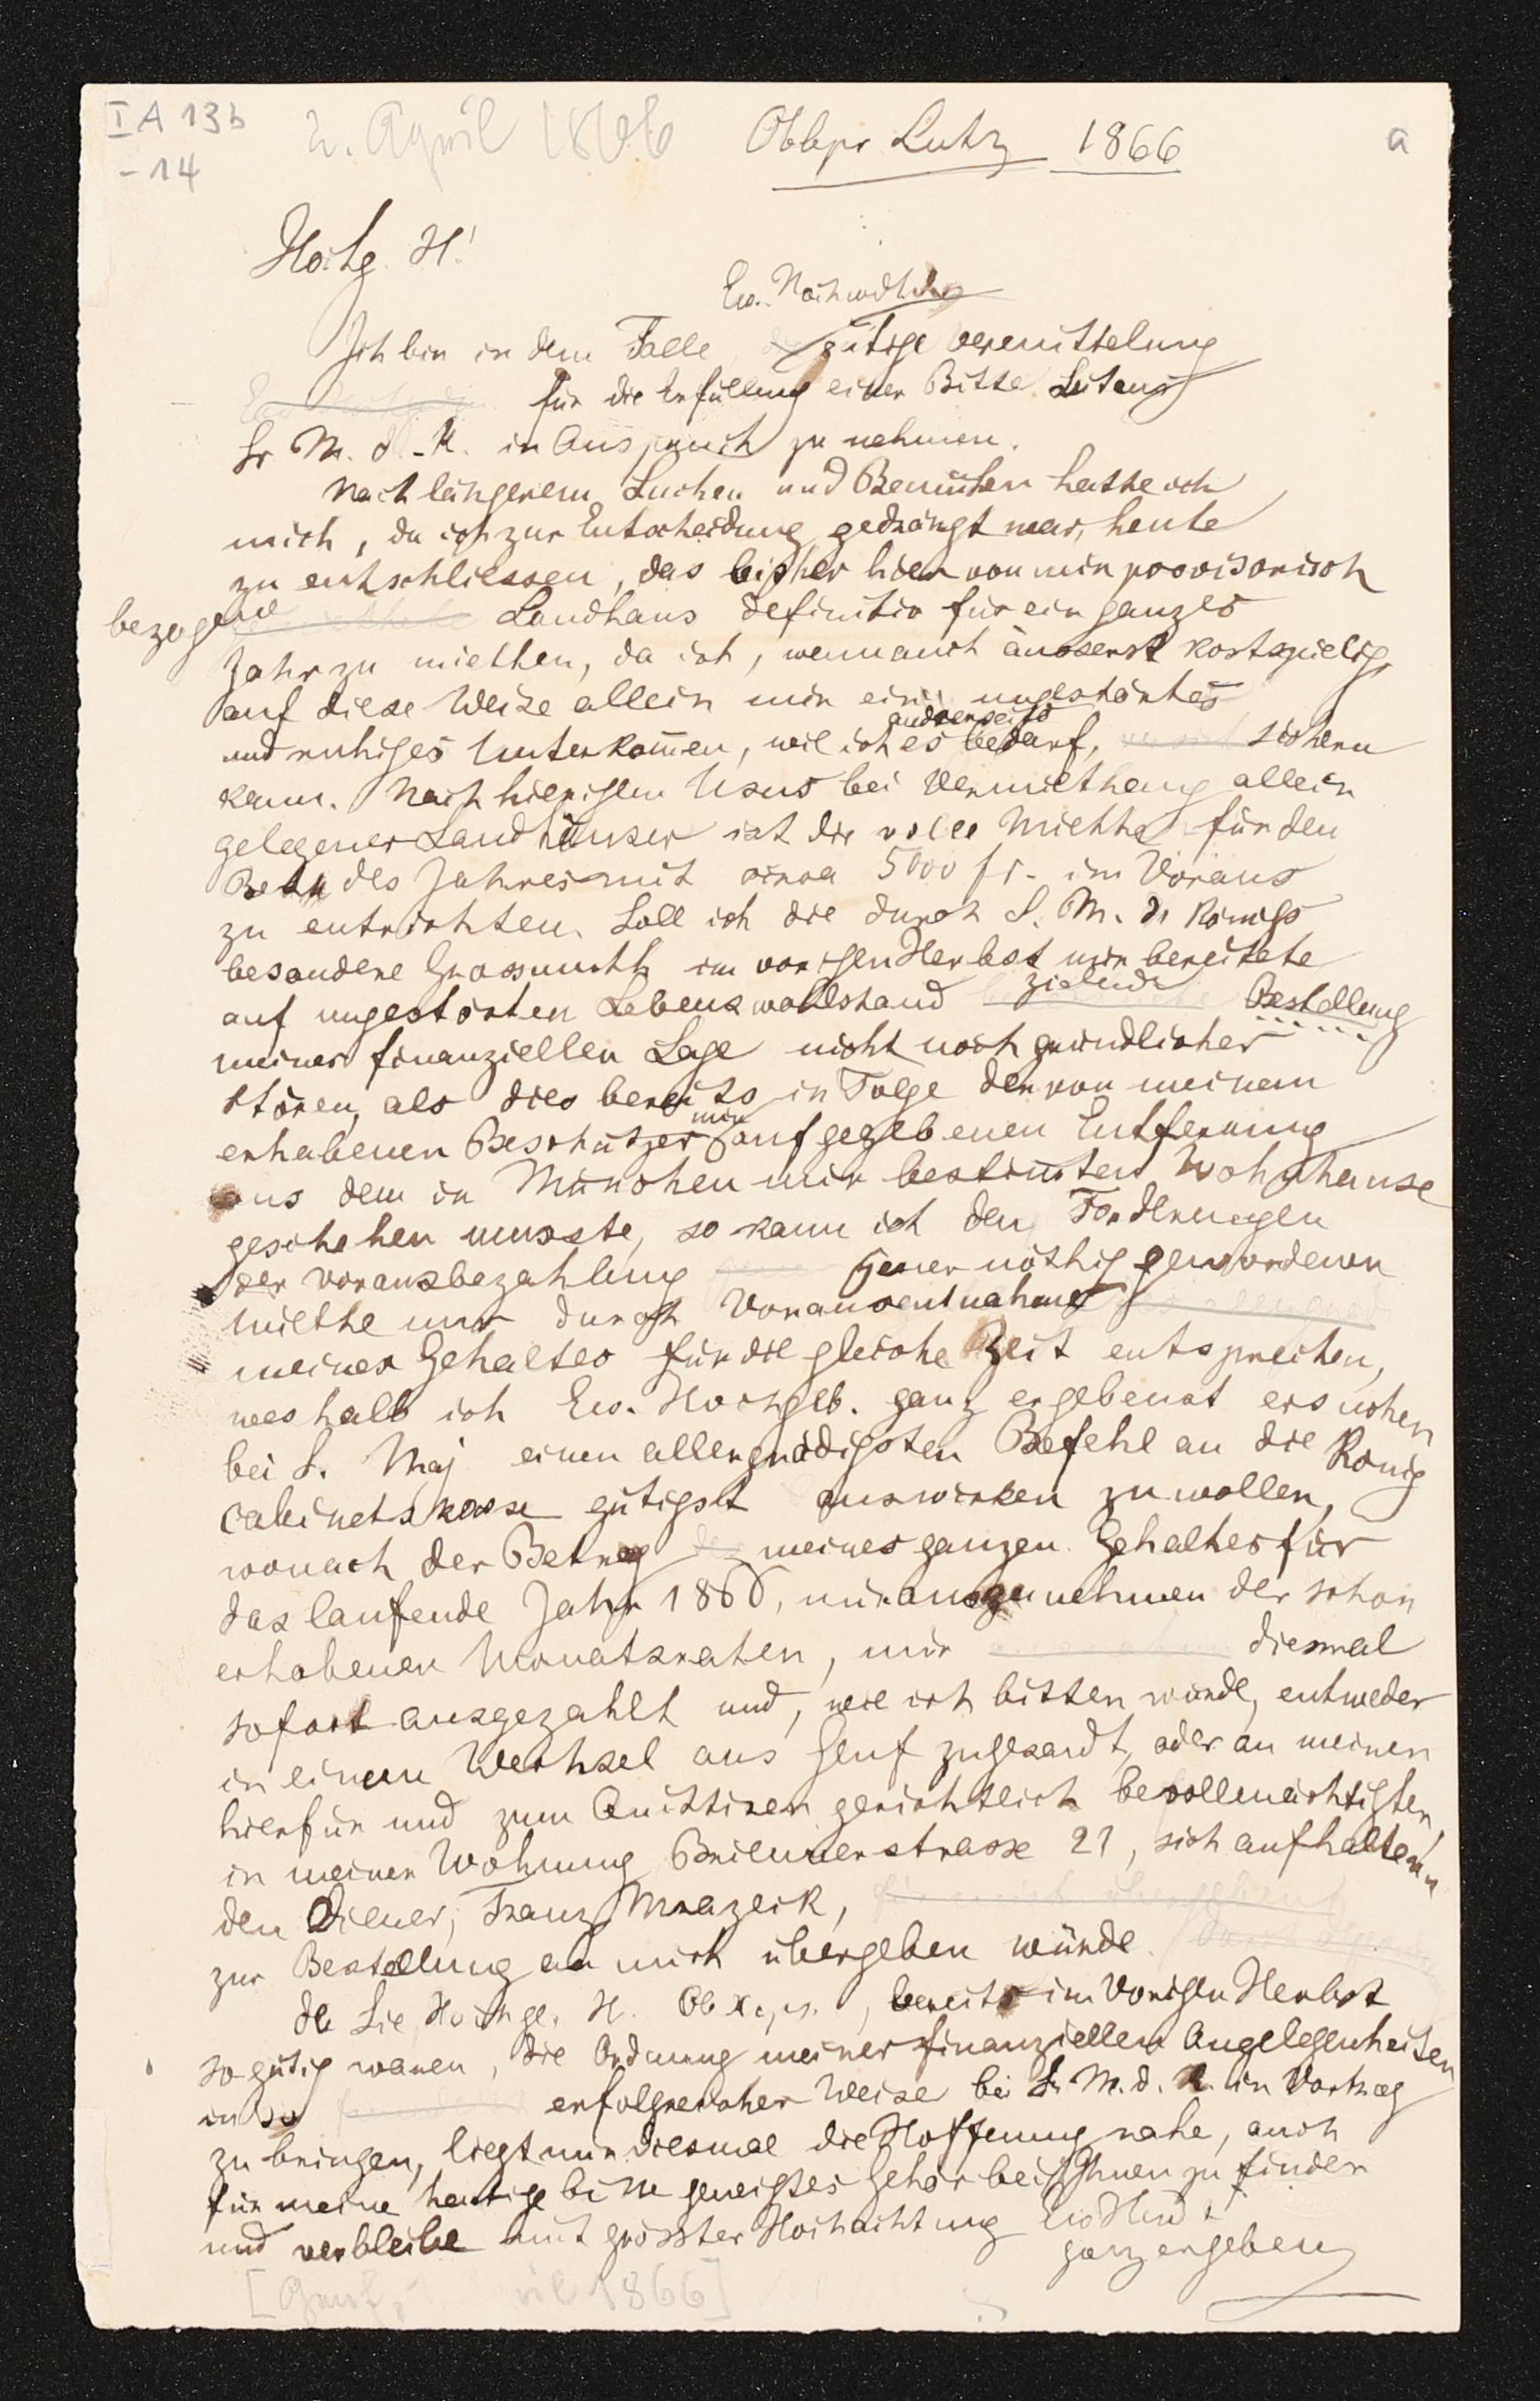 I A 13 b
- 14
2. April 1866
Obbpr Lutz 1866
a
Hochg. H!
Ew. Hochwohlgb
Ich bin in dem Falle gütige Vermittelung
für die Erfüllung einer Bitte Seitens
Sr M. d. K. in Anspruch zu nehmen.
Nach längerem Suchen und Bemühen hatte ich
mich, da ich zur Entscheidung gedrängt war, heute
zu entschliessen, das bisher hier von mir provisorisch
bezogene Landhaus definitiv für ein ganzes
Jahr zu miethen, da ich, wenn auch äusserst kostspielig,
auf diese Weise allein mir ein ungestörtes
und ruhiges Unterkom̄en, wie ich es andrerseits bedarf, sichern
kann. Nach hiesigem Usus bei Vermiethung allein
gelegener Landhäuser ist die volle Miethe für den
Rest des Jahres mit circa 5000 fr. im Voraus
zu entrichten. Soll ich die durch S. M. d. Königs
besondere Grossmuth im vorigen Herbst mir bereitete
auf ungestörten Lebenswohlstand zielende Bestellung
meiner finanziellen Lage nicht noch gründlicher
stören, als dies bereits in Folge der von meinem
erhabenen Beschützer mir aufgegebenen Entfernung
aus dem in München mir bestim̄ten Wohnhause
geschehen musste, so kann ich den Forderungen
der Vorausbezahlung jener nöthig gewordenen
Miethe nur durch Vorausentnahme
meines Gehaltes für die gleiche Zeit entsprechen,
weshalb ich Ew. Hochgeb. ganz ergebenst ersuchen
bei S. Maj einen allergnädigsten Befehl an die König
Cabinetskasse gütigst auswirken zu wollen,
wonach der Betrag meines ganzen Gehaltes für
das laufende Jahr 1866, nur auszunehmen der schon
erhobenen Monatsraten, mir diesmal
sofort ausgezahlt und, wie ich bitten würde, entweder
in einem Wechsel aus Genf zugesandt, oder an meinen
hierfür und zum Quittiren gerichtlich bevollmächtigten,
in meiner Wohnung Briennerstrasse 21, sich aufhalten-
den Diener, Franz Mrazeck,
zur Bestellung an mich übergeben würde.
Da Sie, Hochge. H. , bereits im vorigen Herbst
so gütig waren, die Ordnung meiner finanziellen Angelegenheiten
in so erfolgreicher Weise bei Sr M. d. K. in Vortrag
zu bringen, liegt mir diesmal die Hoffnung nahe, auch
für meine heutige bitte geneigtes Gehör bei Ihnen zu finden
und verbleibe mit grösster Hochachtung
ganz ergeben
[Genf, ril 1866]